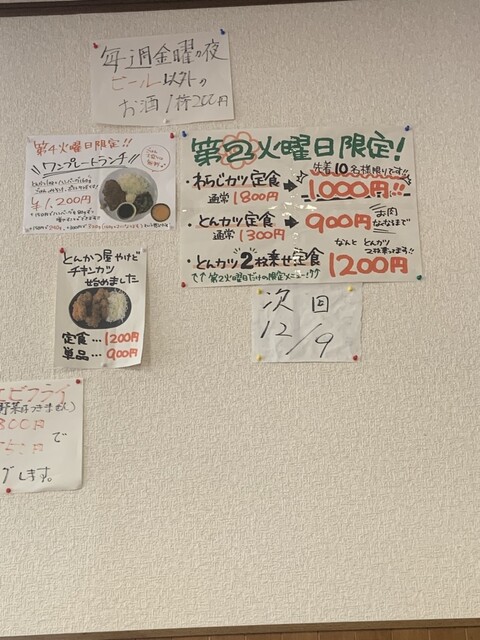 毎週金曜の夜
ビール以外の
お酒1杯200円
第4火曜日限定!!
ワンプレートランチ
¥1,200円
第2火曜日限定!
先着10名様限りです!!
・わらじカツ定食
通常1800円
1,000円!!
・とんかつ定食
通常1300円
900円
お肉
なくなるまで
・とんかつ2枚乗せ定食
なんと とんかつ
2枚乗ります!!
1200円
↑↑第2火曜日だけの限定メニュー↑↑
次回
12/9
とんかつ屋やけど
チキンカツ
始めました
定食…1200円
単品…900円
エビフライ
で
します。